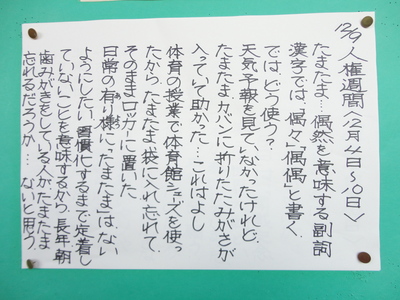 12/9 人権週間〈12月4日〜10日〉
たまたま…偶然を意味する副詞
漢字では、「偶々」「偶偶」と書く。
では、どう使う?
天気予報を見ていなかったけれど、
たまたまカバンに折りたたみがさが
入っていて助かった…これはよし
体育の授業で体育館シューズを使っ
たから、たまたま袋に入れ忘れて、
そのままロッカーに置いた
日常の有り様に「たまたま」はない
ようにしたい。習慣化するまで定着し
ていないことを意味するから。長年、朝
歯みがきをしている人が、たまたま
忘れるだろうか…ないと思う。